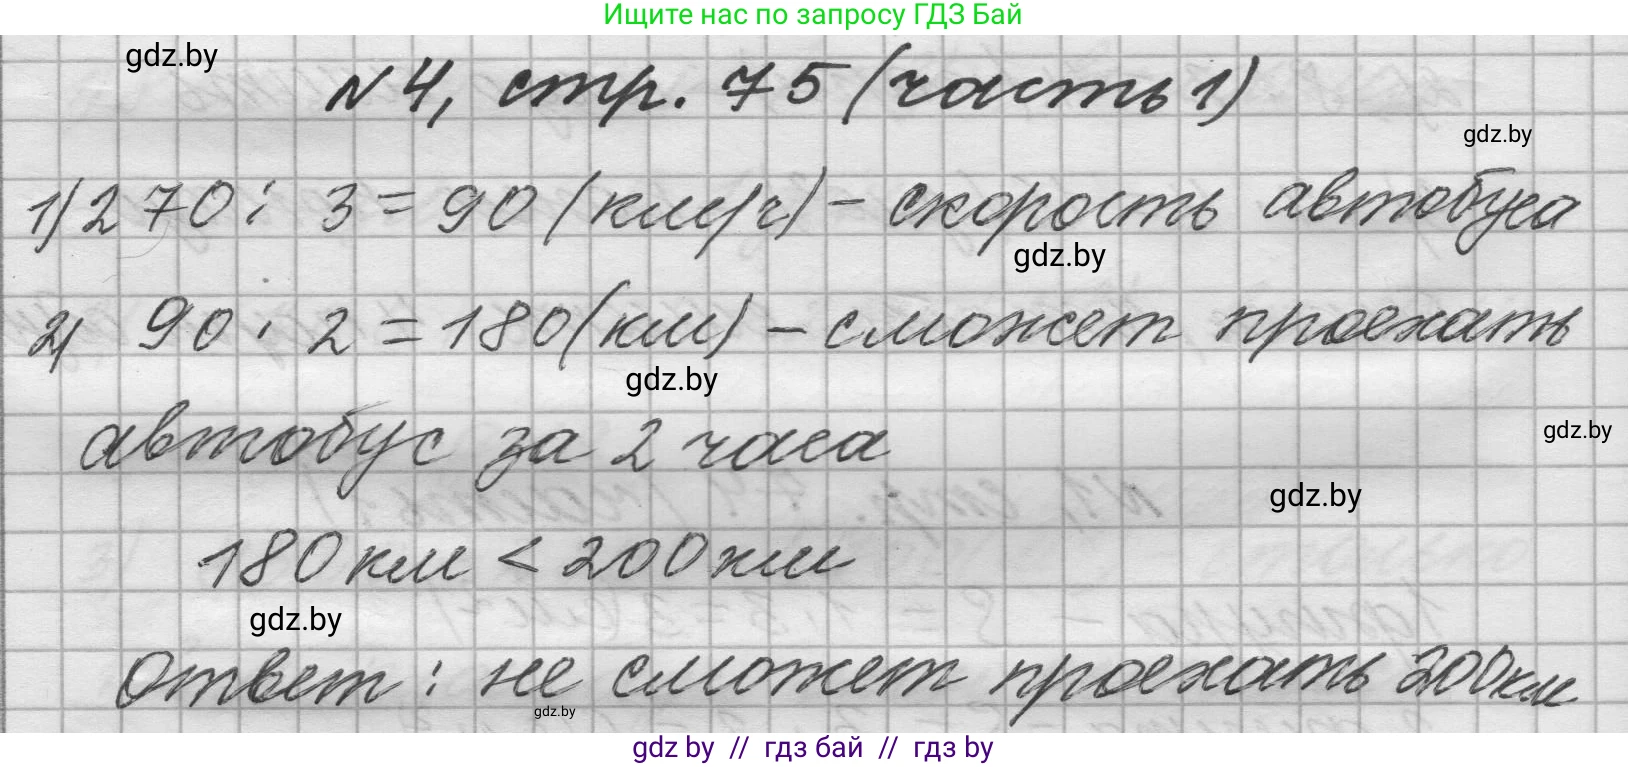 Ищите нас по запросу ГДЗ Бай
gdz.by
№4, стр. 75 (часть 1)
gdz.by
1) 270 : 3 = 90 (км/ч) – скорость автобуса
gdz.by
2) 90 · 2 = 180 (км) – сможет проехать
gdz.by
автобус за 2 часа
gdz.by
gdz.by
180 км < 200 км
gdz.by
Ответ : не сможет проехать 200 км
gdz.by
gdz by // гдз бай // гдз by